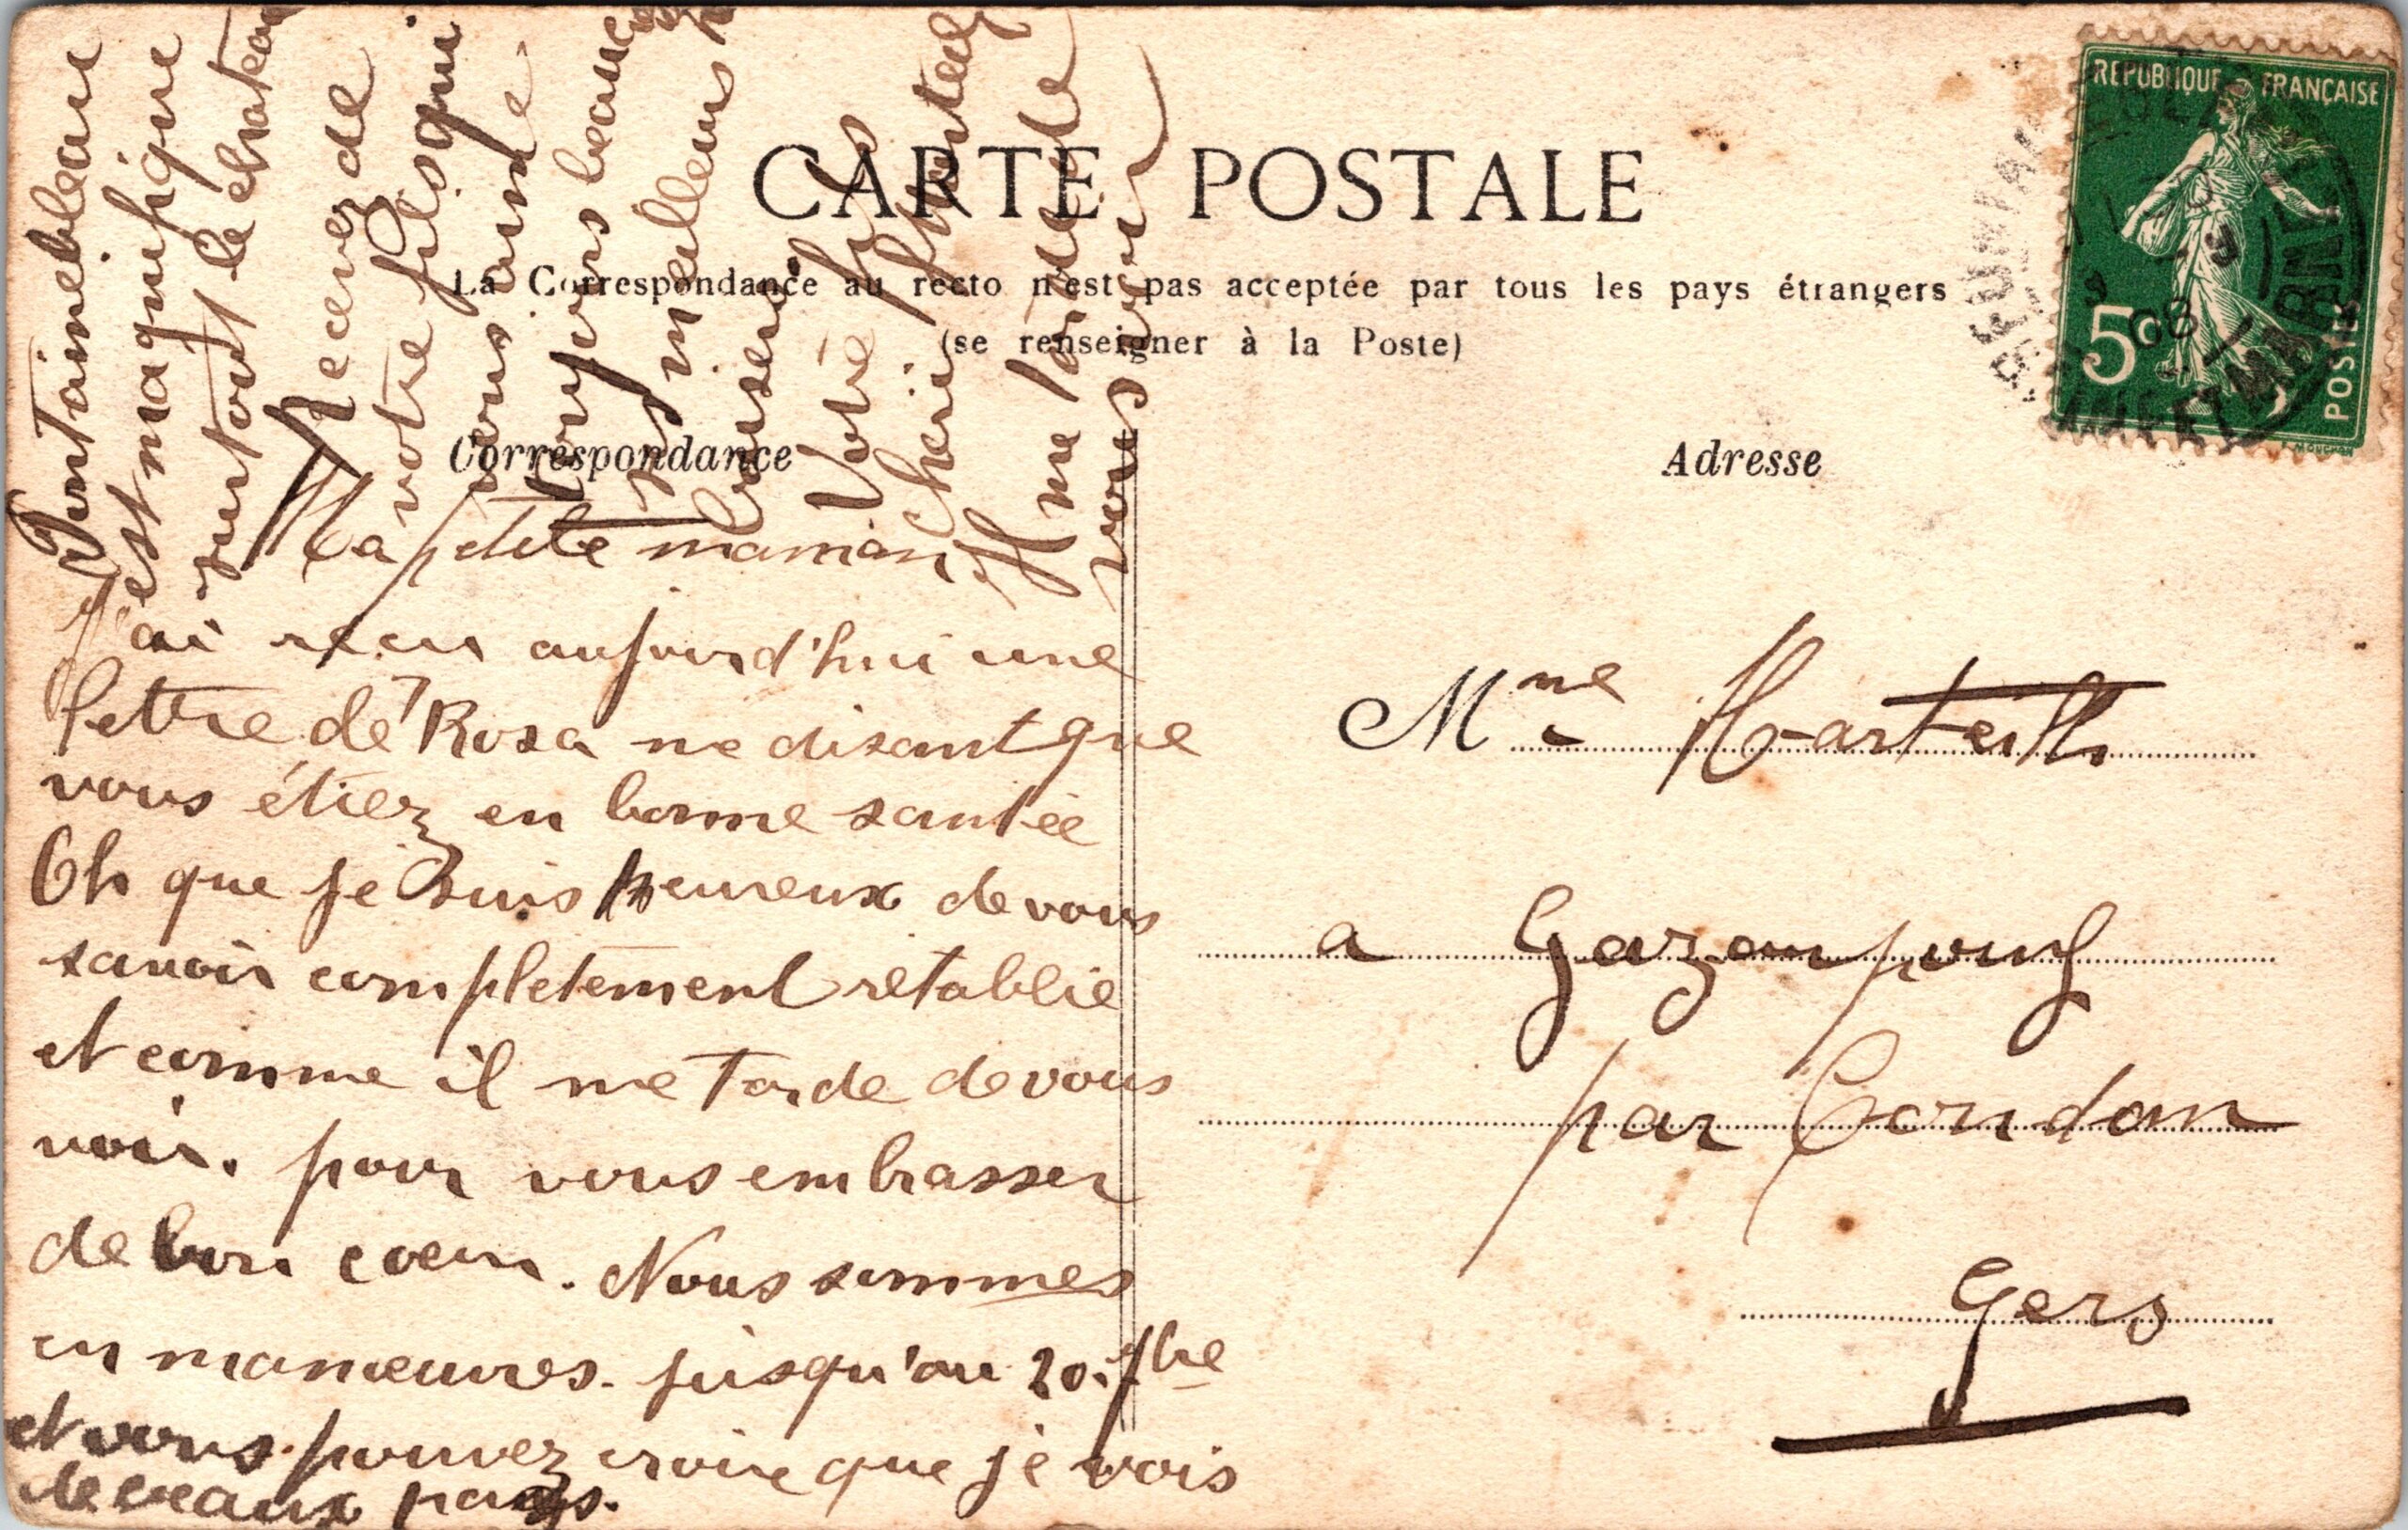 CARTE POSTALE
La Correspondance au recto n'est pas acceptée par tous les pays étrangers
(se renseigner à la Poste)
Correspondance
Adresse
REPUBLIQUE FRANÇAISE
5c
POSTES
08
Ma petite maman
J'ai recu aujourd'hui une
lettre de Rosa me disant que
vous étiez en bonne santée
Oh que je suis heureux de vous
savoir completement retablie
et comme il me tarde de vous
voir. pour vous embrasser
de bon coeur. Nous sommes
en manœuvres. jusqu'au 20. 7bre
et vous pouvez croire que je vois
de beaux pays.
Fontainebleau
est magnifique
surtout le chateau
Recevez de
votre fils qui
vous aime
toujours beaucoup
ses meilleurs
baisers
Votre fils
cheri
Il me tarde de
vous voir
Mme
a Gazaupouy
par Condom
Gers